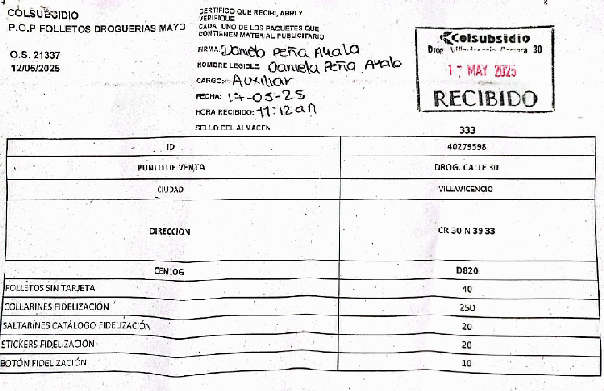 COLSUBSIDIO
P.C.P FOLLETOS DROGUERIAS MAYO
O.S. 21337
12/05/2025
CERTIFICO QUE RECIBI, ABRI Y
VERIFIQUE
CADA UNO DE LOS PAQUETES QUE
CONTIENEN MATERIAL PUBLICITARIO
FIRMA: Daniela Peña Ayala
NOMBRE LEGIBLE: Daniela Peña Ayala
CARGO: Auxiliar
FECHA: 17-05-25
HORA RECIBIDO: 11:12 am
SELLO DEL ALMACEN
Colsubsidio
Drog. Villavicencio Carrera 30
17 MAY 2025
RECIBIDO
333
ID 40279598
PUNTO DE VENTA DROG. CALLE 30
CIUDAD VILLAVICENCIO
DIRECCION CR 30 N 39 33
CENLOG D820
FOLLETOS SIN TARJETA 40
COLLARINES FIDELIZACIÓN 250
SALTARINES CATÁLOGO FIDELIZACIÓN 20
STICKERS FIDELIZACIÓN 20
BOTÓN FIDELIZACIÓN 10